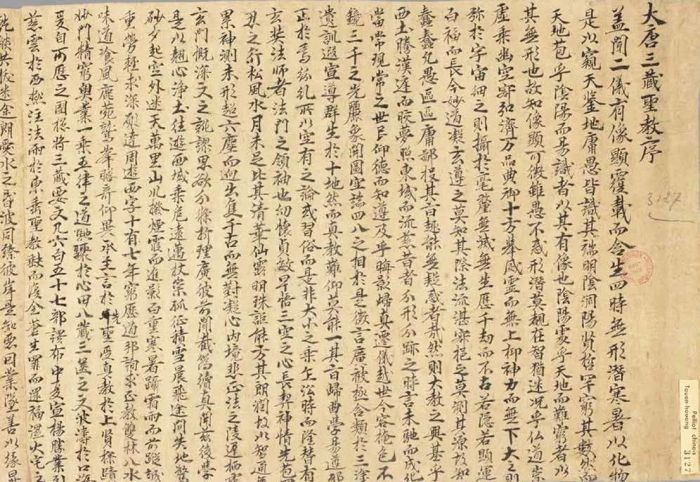 大唐三藏聖教序
蓋聞二儀有像顯覆載而含生四時無形潛寒暑以化物
是以窺天鑒地庸愚皆識其端明陰洞陽賢哲罕窮其數然而
天地苞乎陰陽而易識者以其有像也陰陽處乎天地而難窮者以
其無形也故知像顯可徵雖愚不惑形潛莫覩在智猶迷況乎仏道崇
虛乘幽空寂弘濟万品典御十方舉威靈而無上抑神力而無下大之則
弥於宇宙細之則攝於毫釐無滅無生歷千劫而不古若隱若顯運
百福而長今妙道凝玄遵之莫知其際法流湛寂挹之莫測其源故知
蠢蠢凡愚區區庸鄙投其旨趣能無疑惑者哉然則大教之興基乎
西土騰漢迋而皎夢照東域而流慈昔者分形分跡之時言未馳而成化
當常現常之世民仰德而知遵及乎晦影歸真遷儀越世金容掩色不
鏡三千之光麗象開圖空端四八之相於是微言廣被拯含類於三塗
遺訓遐宣導群生於十地然而真教難仰莫能一其旨歸曲學易遵耶
正於焉紛糺所以空有之論或習俗而是非大小之乘乍沿時而隆替有
玄奘法師者法門之領袖也幼懷貞敏早悟三空之心長契神情先苞四
忍之行松風水月未足比其清華仙露明珠詎能方其朗潤故以智通無
累神測未形超六塵而逈出隻千古而無對凝心內境悲正法之陵遲栖慮
玄門慨深文之訛謬思欲分條析理廣彼前聞截偽續真開茲後學
是以翹心淨土往遊西域乘危遠邁杖策孤征積雪晨飛途間失地驚
砂夕起空外迷天萬里山川撥煙霞而進影百重寒暑躡霜雨而前蹤誠
重勞輕求深願達周遊西宇十有七年窮歷道邦詢求正教雙林八水
味道飡風鹿菀鷲峯瞻奇仰異承至言於先聖受真教於上賢探賾
妙門精窮奧業一乘五律之道馳驟於心田八藏三篋之文波濤於口海
爰自所歷之國摠將三藏要文凡六百五十七部譯布中夏宣揚勝業引
慈雲於西極注法雨於東垂聖教缺而復全蒼生罪而還福濕火宅之
乾焰共拔迷途朗愛水之昏波同臻彼岸是知惡因業墜善以緣昇
3127
Pelliot chinois
Touen-houang
3127